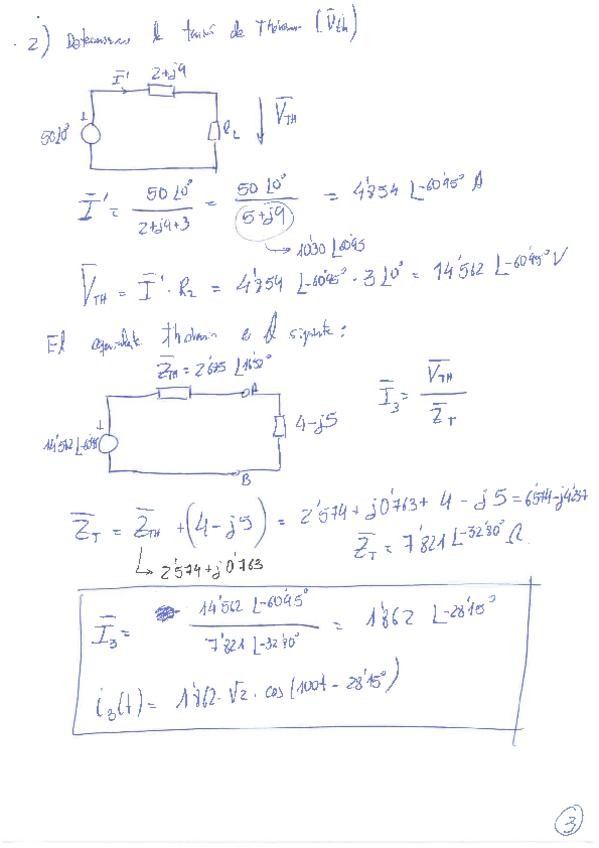 2) Determinamos la tensión de Thévenin (V̅th)
I̅' 2+j9
50∠0° + R₂ V̅TH
I̅' = 50∠0° / 2+j9+3 = 50∠0° / 5+j9 = 4'854 ∠-60'95° A
→ 10'30 ∠60'95
V̅TH = I̅' · R₂ = 4'854 ∠-60'95° · 3∠0° = 14'562 ∠-60'95° V
El equivalente Thévenin es el siguiente:
Z̅TH = 2'685 ∠16'52°
A
14'562 ∠-60'95 + 4-j5 I̅₃ = V̅TH / Z̅T
B
Z̅T = Z̅TH + (4-j5) = 2'574 + j0'763 + 4 - j5 = 6'574 - j4'237
↳ 2'574 + j0'763 Z̅T = 7'821 ∠-32'80° Ω
I̅₃ = 14'562 ∠-60'95° / 7'821 ∠-32'80° = 1'862 ∠-28'15°
i₃(t) = 1'862 · √2 · cos(100t - 28'15°)
3